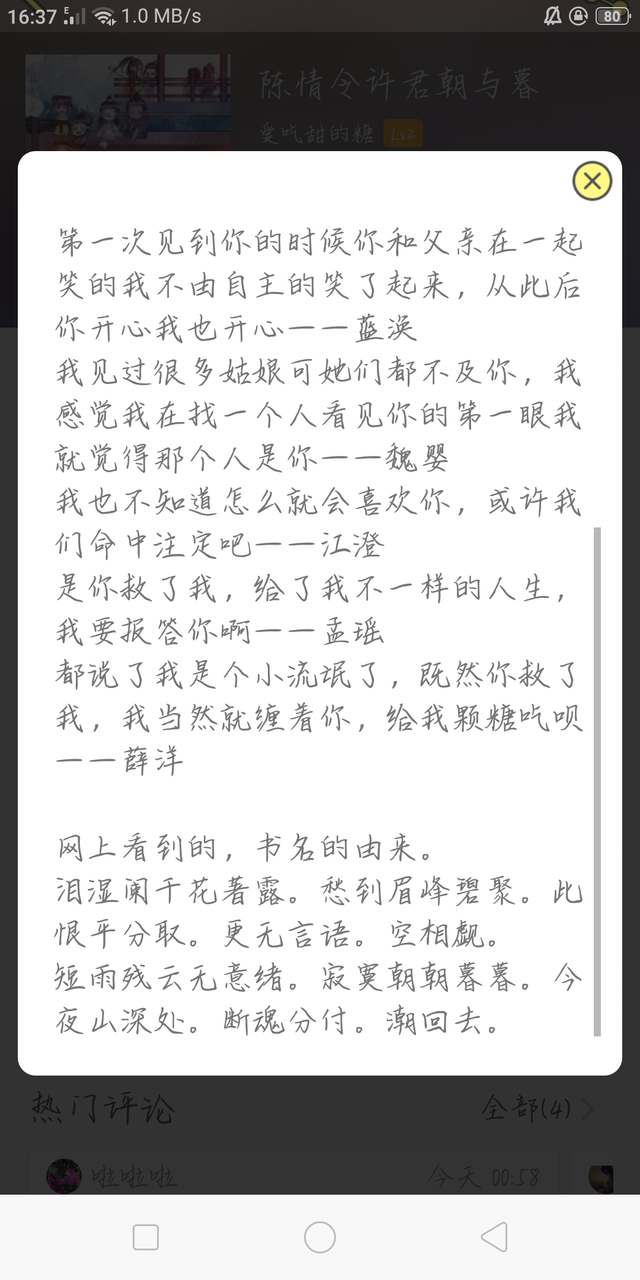 16:37 E 1.0 MB/s 80
陈情令许君朝与暮
爱吃甜的糖 Lv2
第一次见到你的时候你和父亲在一起
笑的我不由自主的笑了起来，从此后
你开心我也开心——蓝涣
我见过很多姑娘可她们都不及你，我
感觉我在找一个人看见你的第一眼我
就觉得那个人是你——魏婴
我也不知道怎么就会喜欢你，或许我
们命中注定吧——江澄
是你救了我，给了我不一样的人生，
我要报答你啊——孟瑶
都说了我是个小流氓了，既然你救了
我，我当然就缠着你，给我颗糖吃呗
——薛洋
网上看到的，书名的由来。
泪湿阑干花著露。愁到眉峰碧聚。此
恨平分取。更无言语。空相觑。
短雨残云无意绪。寂寞朝朝暮暮。今
夜山深处。断魂分付。潮回去。
热门评论 全部(4)
啦啦啦 今天 00:58